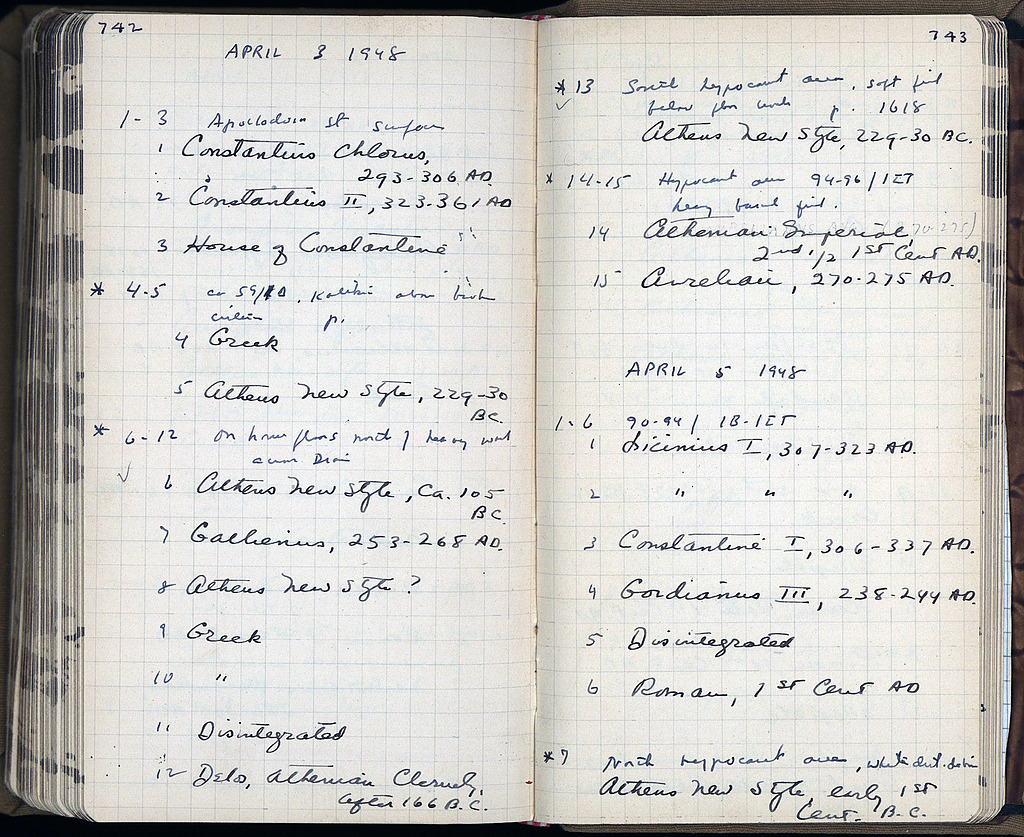 742
APRIL 3 1948
1-3 Apollodorus St surface
1 Constantius Chlorus,
293-306 AD.
2 Constantius II, 323-361 AD
3 House of Constantine
* 4-5 ca 59/ . above
p.
4 Greek
5 Athens New Style, 229-30
BC.
* 6-12 On floors north of heavy wall
Drain
✓
6 Athens New Style, Ca. 105
BC.
7 Gallienus, 253-268 AD.
8 Athens New Style?
9 Greek
10 "
11 Disintegrated
12 Delos, Athenian Cleruchy,
after 166 B.C.
743
* 13 South hypocaust area, soft fill
✓ below floor p. 1618
Athens New Style, 229-30 BC.
* 14-15 Hypocaust area 94-96/IET
heavy fill.
14 Athenian Imperial,
2nd 1/2 1ST Cent AD.
15 Aurelian, 270-275 AD.
APRIL 5 1948
1-6 90-94/ IB-IET
1 Licinius I, 307-323 AD.
2 " " "
3 Constantine I, 306-337 AD.
4 Gordianus III, 238-244 AD.
5 Disintegrated
6 Roman, 1ST Cent AD
* 7 North hypocaust area, white
Athens New Style early 1ST
Cent. B.C.